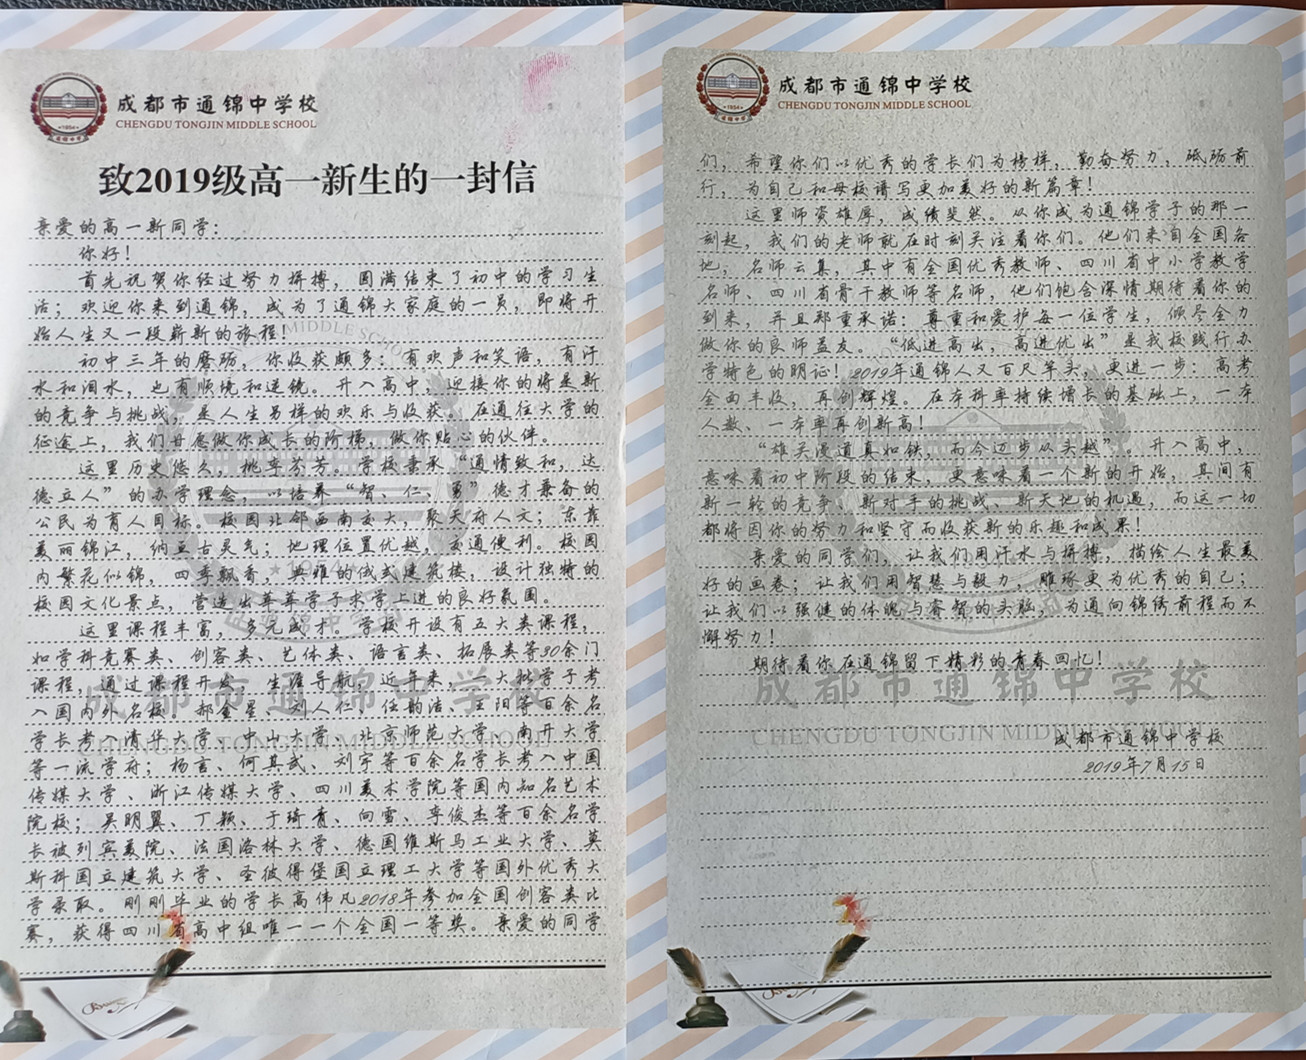 成都市通锦中学校
CHENGDU TONGJIN MIDDLE SCHOOL
致2019级高一新生的一封信
亲爱的高一新同学：
你好！
首先祝贺你经过努力拼搏，圆满结束了初中的学习生
活；欢迎你来到通锦，成为了通锦大家庭的一员，即将开
始人生又一段崭新的旅程！
初中三年的磨砺，你收获颇多：有欢声和笑语，有汗
水和泪水，也有顺境和逆镜。升入高中，迎接你的将是新
的竞争与挑战，是人生另样的欢乐与收获。在通往大学的
征途上，我们甘愿做你成长的阶梯，做你贴心的伙伴。
这里历史悠久，桃李芬芳。学校秉承“通情致和，达
德立人”的办学理念，以培养“智、仁、勇”德才兼备的
公民为育人目标。校园北邻西南交大，聚天府人文；东靠
美丽锦江，纳亘古灵气；地理位置优越，交通便利。校园
内繁花似锦，四季飘香，典雅的俄式建筑楼，设计独特的
校园文化景点，营造出莘莘学子求学上进的良好氛围。
这里课程丰富，多元成才。学校开设有五大类课程，
如学科竞赛类、创客类、艺体类、语言类、拓展类等30余门
课程，通过课程开发、生涯导航，近年来，一大批学子考
入国内外名校。郝金星、刘人仁、任韵洁、王阳等百余名
学长考入清华大学、中山大学、北京师范大学、南开大学
等一流学府；杨言、何其武、刘宇等百余名学长考入中国
传媒大学、浙江传媒大学、四川美术学院等国内知名艺术
院校；吴明翼、丁颖、于琦青、向雪、李俊杰等百余名学
长被列宾美院、法国洛林大学、德国维斯马工业大学、莫
斯科国立建筑大学、圣彼得堡国立理工大学等国外优秀大
学录取。刚刚毕业的学长高伟凡2018年参加全国创客类比
赛，获得四川省高中组唯一一个全国一等奖。亲爱的同学
成都市通锦中学校
CHENGDU TONGJIN MIDDLE SCHOOL
们，希望你们以优秀的学长们为榜样，勤奋努力，砥砺前
行，为自己和母校谱写更加美好的新篇章！
这里师资雄厚，成绩斐然。从你成为通锦学子的那一
刻起，我们的老师就在时刻关注着你们。他们来自全国各
地，名师云集，其中有全国优秀教师、四川省中小学教学
名师、四川省骨干教师等名师，他们饱含深情期待着你的
到来，并且郑重承诺：尊重和爱护每一位学生，倾尽全力
做你的良师益友。“低进高出，高进优出”是我校践行办
学特色的明证！2019年通锦人又百尺竿头，更进一步：高考
全面丰收，再创辉煌。在本科率持续增长的基础上，一本
人数、一本率再创新高！
“雄关漫道真如铁，而今迈步从头越”，升入高中，
意味着初中阶段的结束，更意味着一个新的开始，其间有
新一轮的竞争、新对手的挑战、新天地的机遇，而这一切
都将因你的努力和坚守而收获新的乐趣和成果！
亲爱的同学们，让我们用汗水与拼搏，描绘人生最美
好的画卷；让我们用智慧与毅力，雕琢更为优秀的自己；
让我们以强健的体魄与睿智的头脑，为通向锦绣前程而不
懈努力！
期待着你在通锦留下精彩的青春回忆！
成都市通锦中学校
2019年7月15日